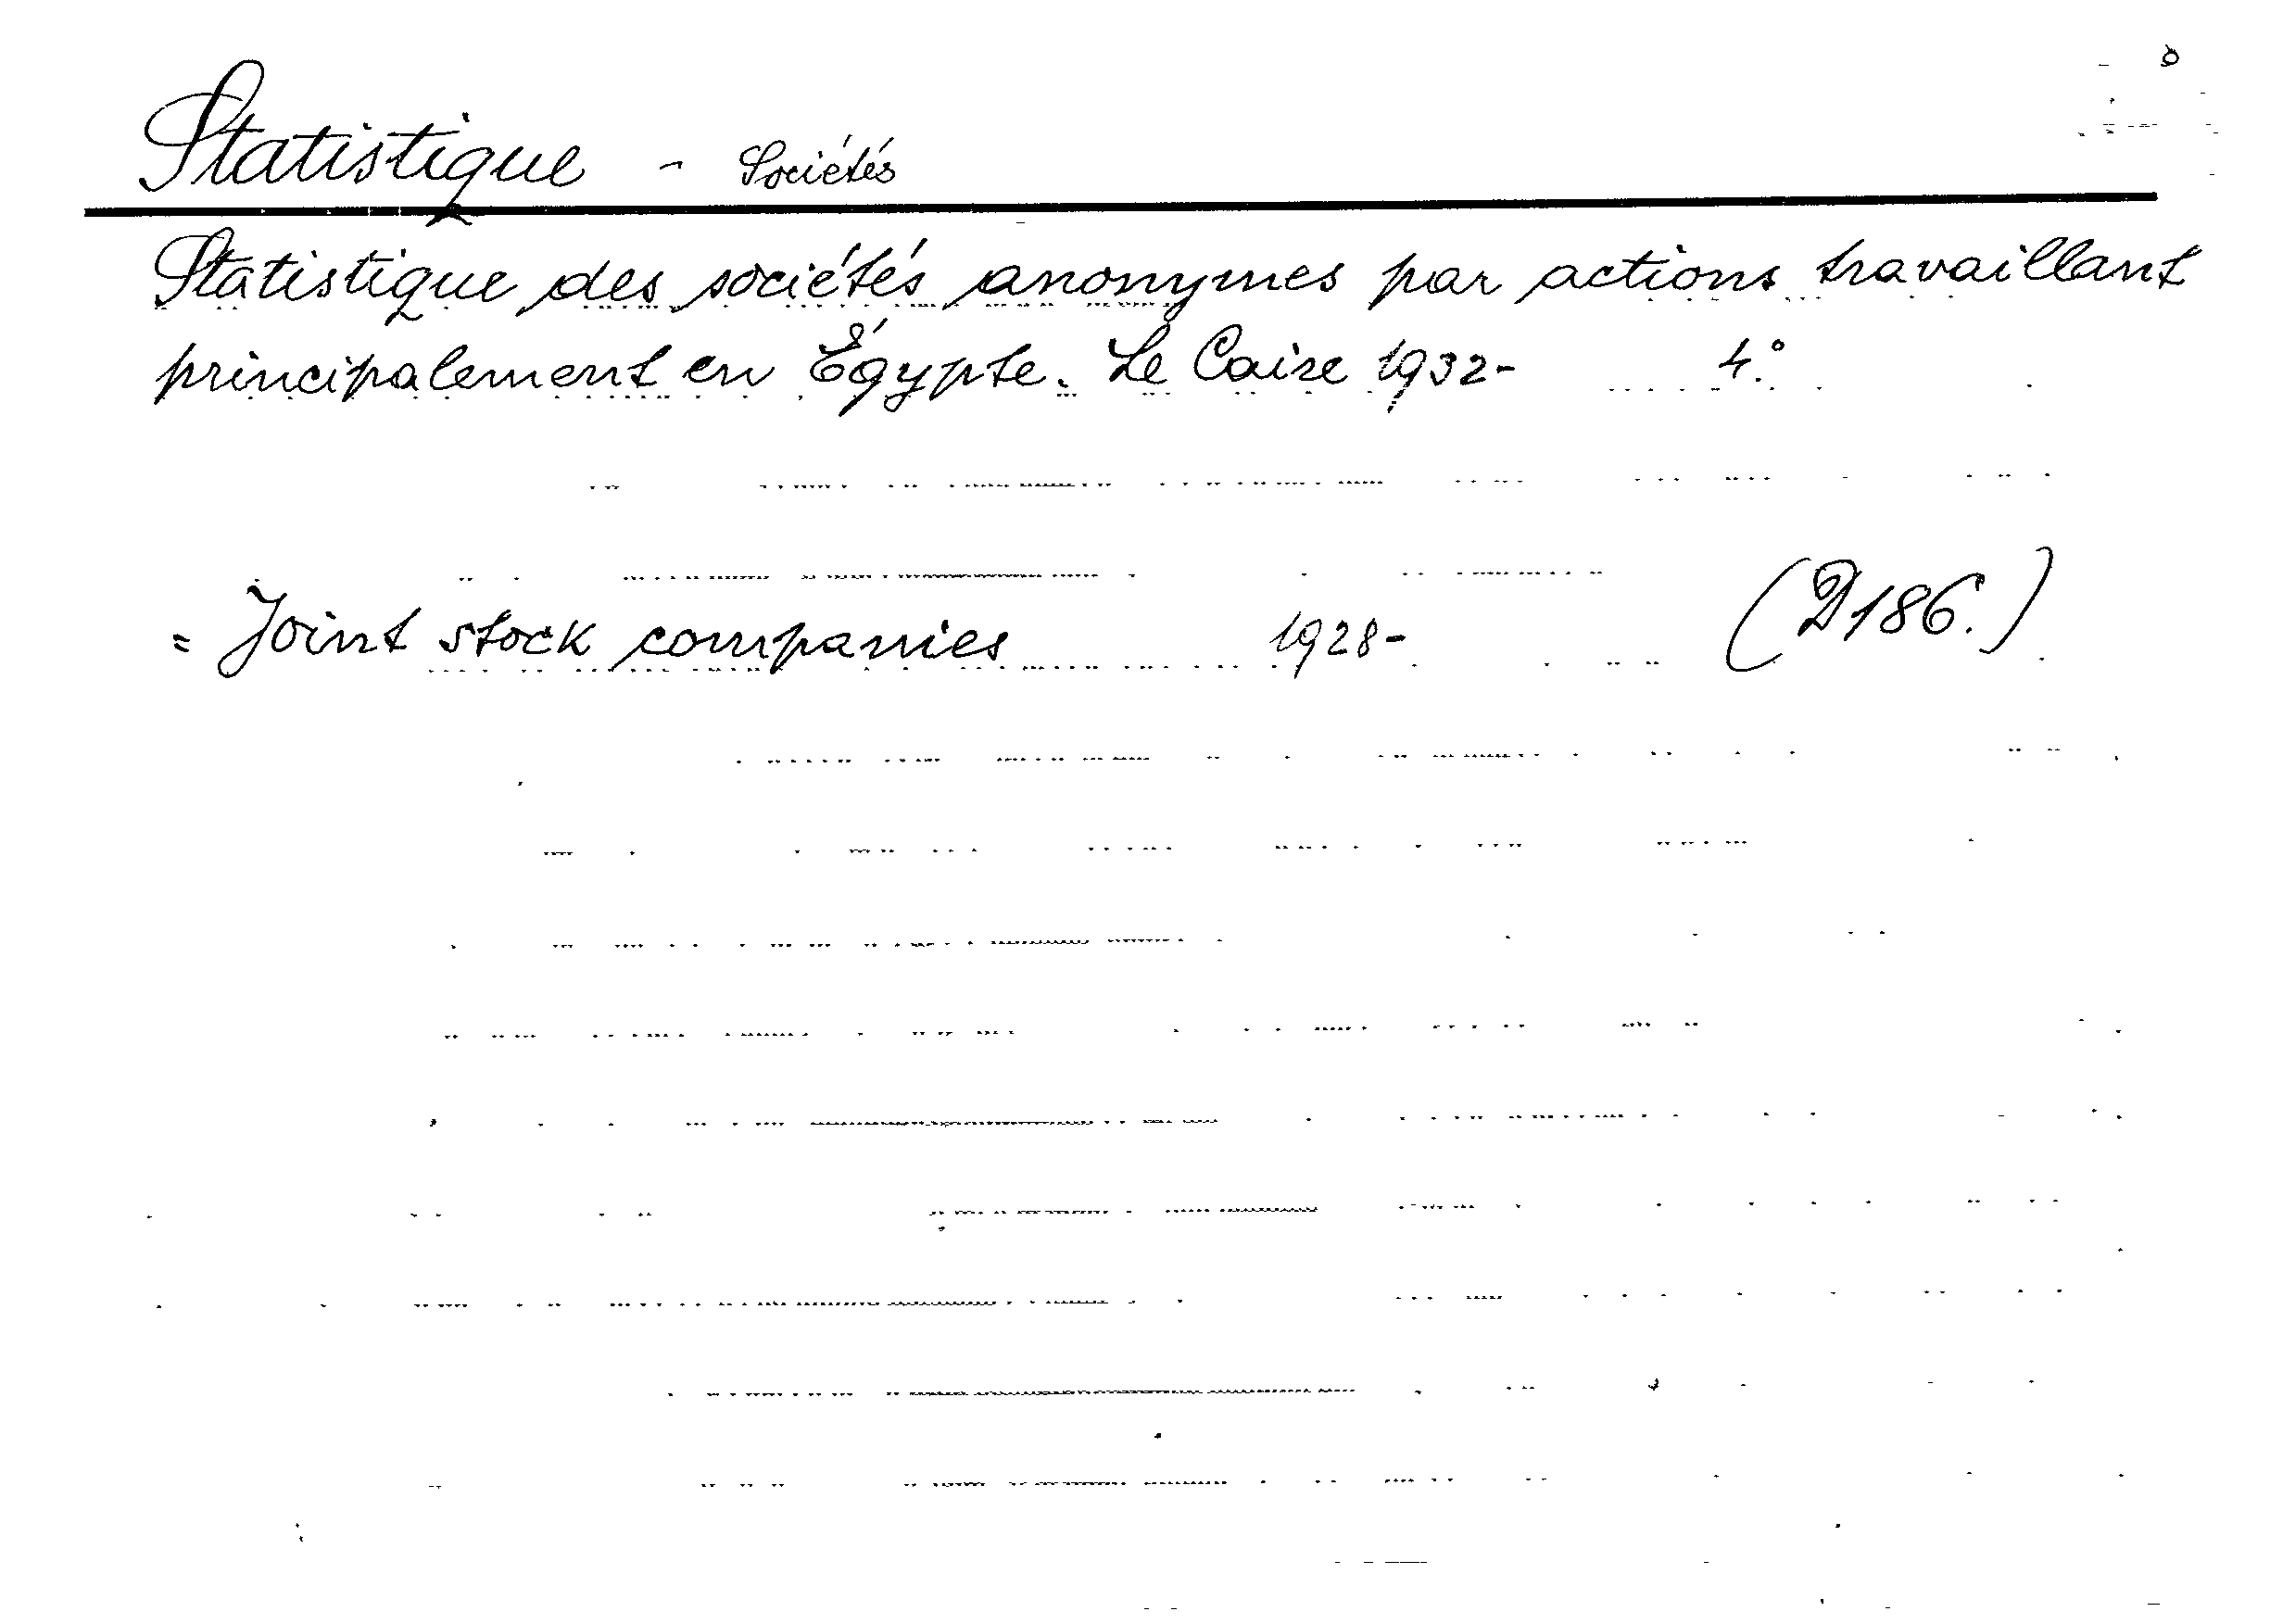 Statistique - Sociétés
Statistique des sociétés anonymes par actions travaillant
principalement en Égypte. Le Caire 1932- 4.°
= Joint stock companies 1928- (D186.)